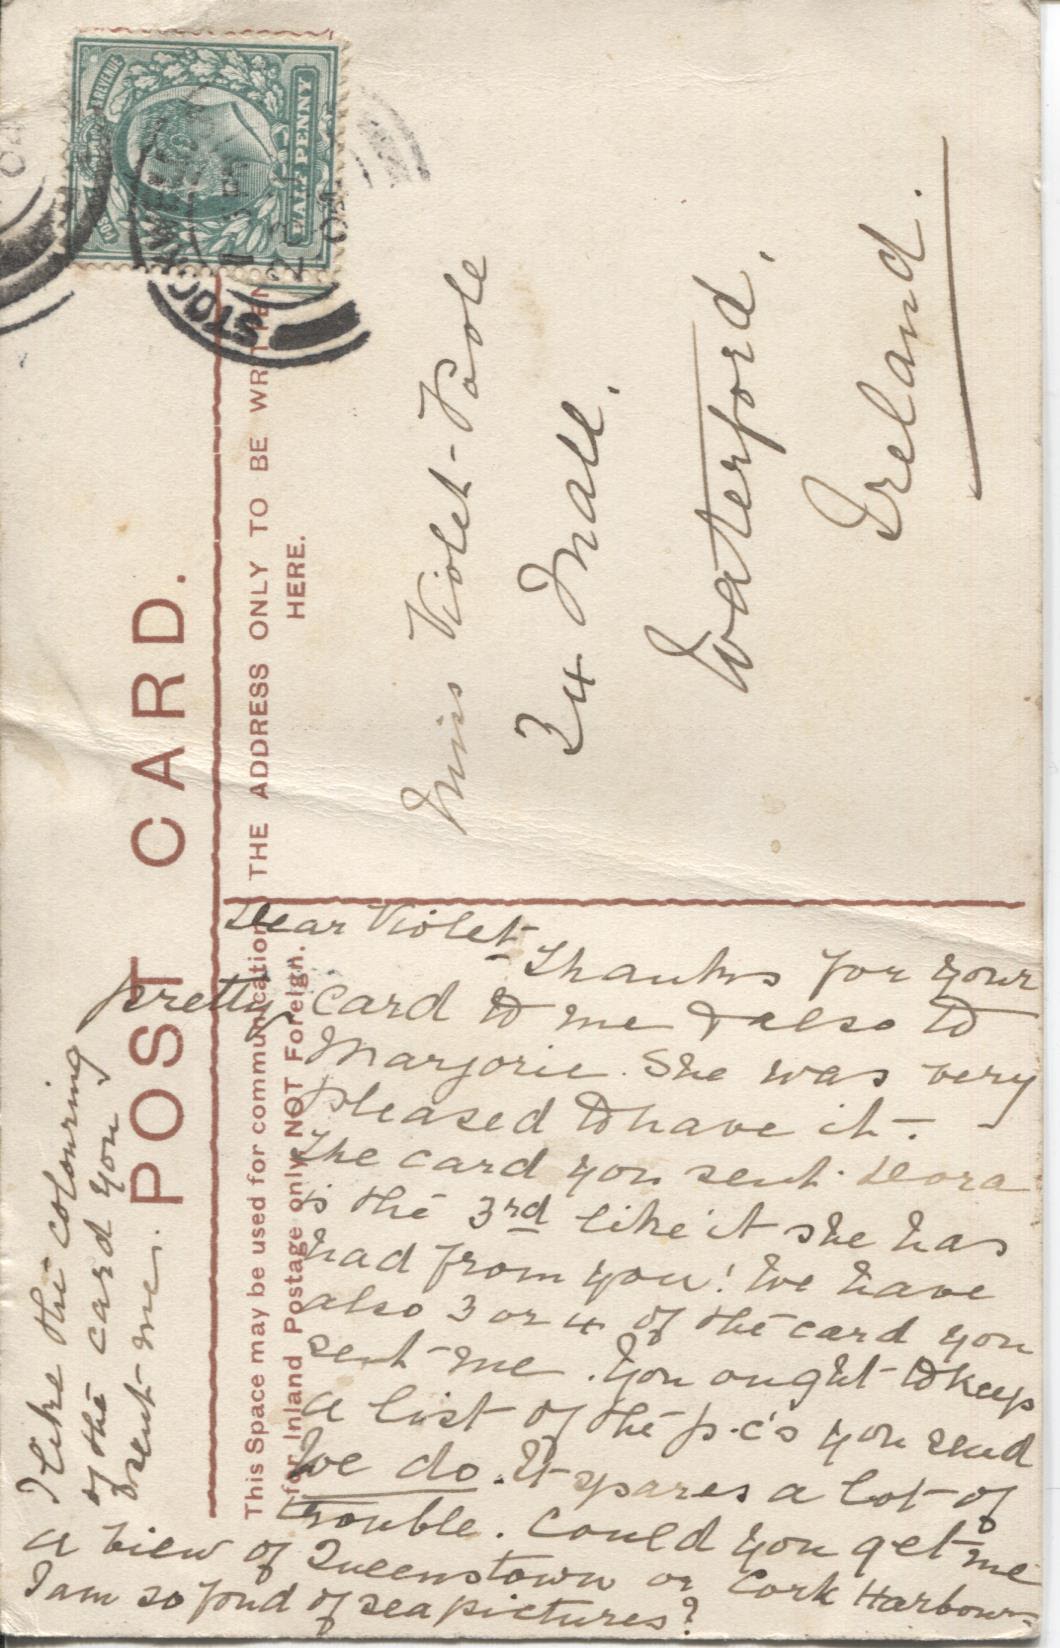 POSTAGE & REVENUE
HALF PENNY
STOCKWELL
04
POST CARD.
THE ADDRESS ONLY TO BE WRITTEN
HERE.
This Space may be used for communication
for Inland Postage only NOT Foreign.
Miss Violet Poole
34 Mall.
Waterford.
Ireland.
Dear Violet
Thanks for your
pretty card to me & also to
Marjorie. She was very
pleased to have it.
The card you sent Dora
is the 3rd like it she has
had from you! We have
also 3 or 4 of the card you
sent me. You ought to keep
a list of the p.c's you send
We do. It spares a lot of
trouble. Could you get me
a view of Queenstown or Cork Harbour
I am so fond of sea pictures?
I like the colouring
of the card you
sent me.